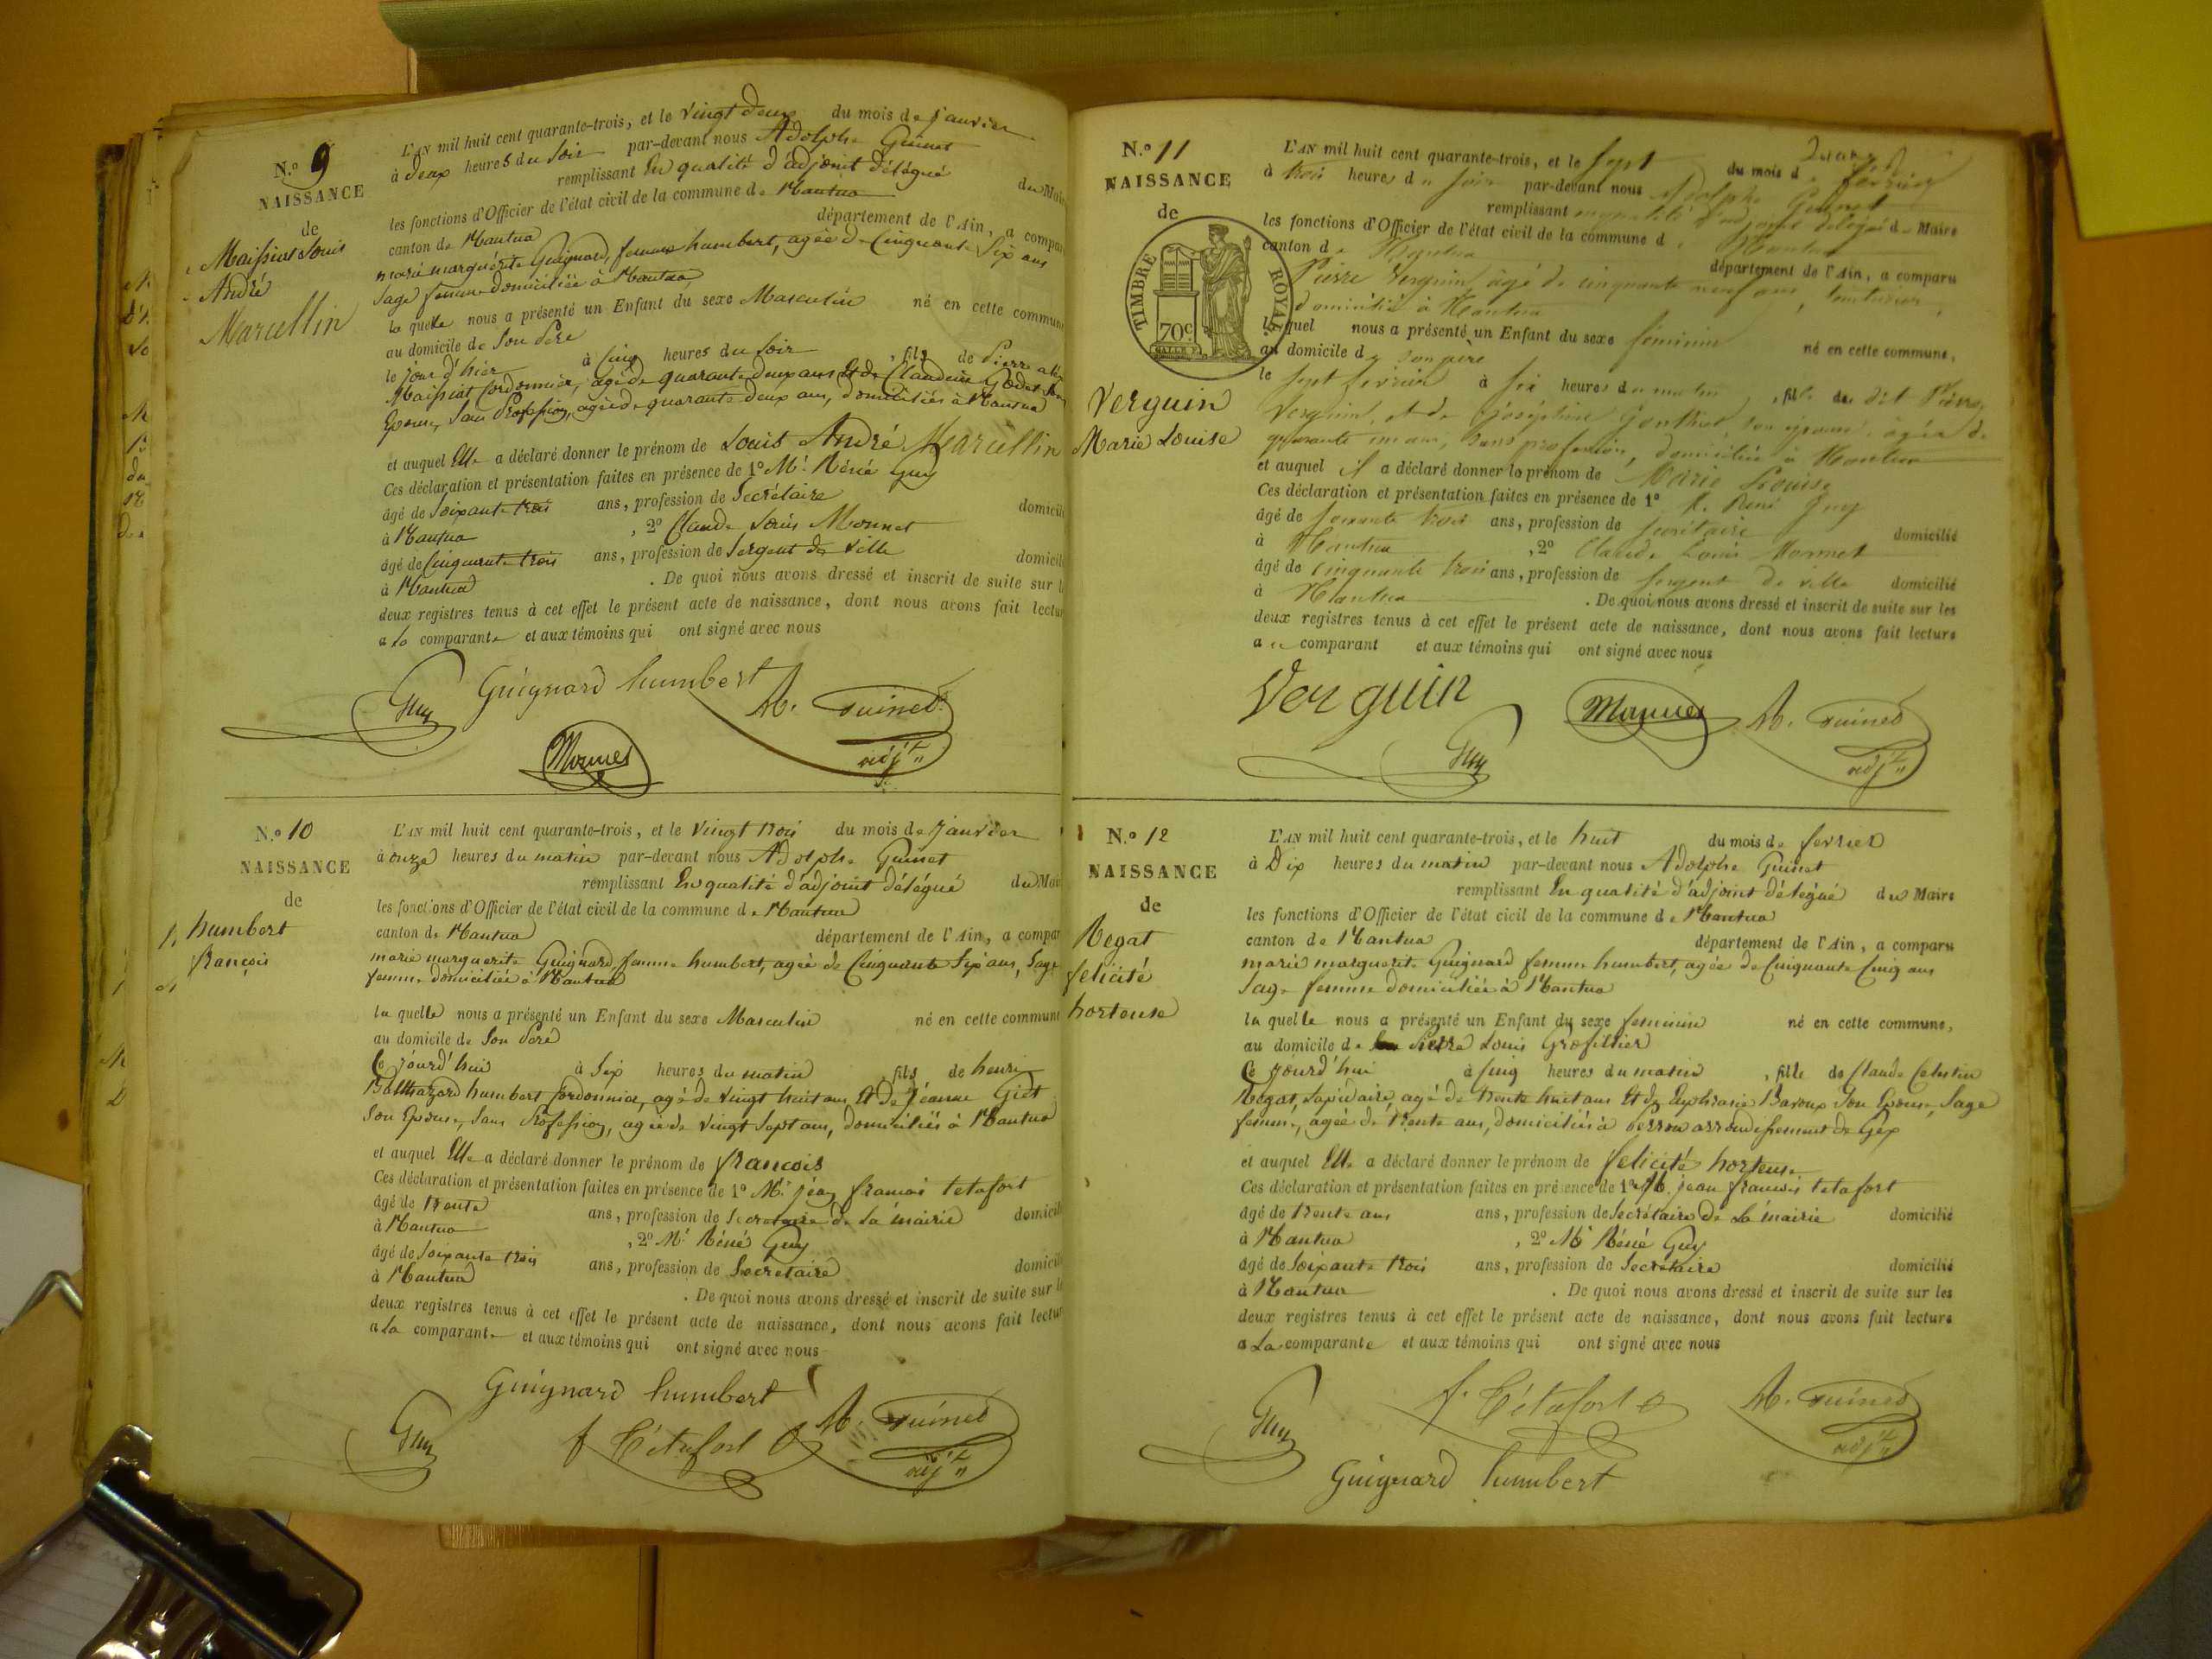 N.º 9
NAISSANCE
de
Maissiat Louis
André
Marcellin
L'AN mil huit cent quarante-trois, et le vingt deux du mois de janvier
à deux heures du soir par-devant nous Adolphe Guinet
remplissant En qualité d'adjoint délégué du Mai
les fonctions d'Officier de l'état civil de la commune de Mantua
canton de Mantua département de l'Ain, a compa
marie marguerite Guignard, femme humbert, agée de Cinquante Six ans
Sage femme domiciliée à Mantua
la quelle nous a présenté un Enfant du sexe Masculin né en cette commun
au domicile de Son Père
le jour d'hier à Cinq heures du Soir , fils de Pierre
Maissiat Cordonnier, agé de quarante deux ans Et de Claudine
Epouse, Sans Profession, agée de quarante deux ans, domiciliés à Mantua
et auquel Elle a déclaré donner le prénom de Louis André Marcellin
Ces déclaration et présentation faites en présence de 1º Mr. Réné Guy
âgé de Soixante trois ans, profession de Secrétaire domicili
à Mantua , 2º Claude Louis Monnet
âgé de Cinquante trois ans, profession de Sergent de Ville domicili
à Mantua . De quoi nous avons dressé et inscrit de suite sur l
deux registres tenus à cet effet le présent acte de naissance, dont nous avons fait lectur
a la comparante et aux témoins qui ont signé avec nous
Guignard humbert
Guy
A. Guinet
adjt
Monnet
N.º 10
NAISSANCE
de
humbert
françois
L'AN mil huit cent quarante-trois, et le vingt trois du mois de janvier
à onze heures du matin par-devant nous Adolphe Guinet
remplissant En qualité d'adjoint délégué du Mai
les fonctions d'Officier de l'état civil de la commune de Mantua
canton de Mantua département de l'Ain, a compar
marie marguerite Guignard, femme humbert, agée de Cinquante Six ans, Sage
femme domiciliée à Mantua
la quelle nous a présenté un Enfant du sexe Masculin né en cette commune
au domicile de Son Père
Ce jourd'hui à Six heures du matin , fils de henri
Balthazard humbert Cordonnier, agé de Vingt huit ans Et de Jeanne Giet
Son Epouse, Sans Profession, agée de Vingt Sept ans, domiciliés à Mantua
et auquel Elle a déclaré donner le prénom de françois
Ces déclaration et présentation faites en présence de 1º Mr. jean françois tetafort
âgé de trente ans, profession de Secretaire de La mairie domicili
à Mantua , 2º Mr Réné Guy
âgé de Soixante trois ans, profession de Secretaire domicili
à Mantua . De quoi nous avons dressé et inscrit de suite sur l
deux registres tenus à cet effet le présent acte de naissance, dont nous avons fait lectur
a La comparante et aux témoins qui ont signé avec nous
Guignard humbert
Guy
f Tétafort
A. Guinet
adjt
N.º 11
NAISSANCE
de
TIMBRE ROYAL
70c
Verguin
Marie Louise
L'AN mil huit cent quarante-trois, et le Sept du mois de février
à trois heures du soir par-devant nous Adolphe Guinet
remplissant en qualité d'adjoint délégué du Maire
les fonctions d'Officier de l'état civil de la commune de Mantua
canton de Mantua département de l'Ain, a comparu
Pierre Verguin, agé de cinquante neuf ans, teinturier,
domicilié à Mantua
lequel nous a présenté un Enfant du sexe féminin né en cette commune,
au domicile de son père
le Sept février à six heures du matin , fille du dit Pierre
Verguin, et de Joséphine Gonthier son épouse, agée de
quarante un ans, sans profession, domiciliée à Mantua
et auquel il a déclaré donner le prénom de Marie Louise
Ces déclaration et présentation faites en présence de 1º M. Réné Guy
âgé de soixante trois ans, profession de secrétaire domicilié
à Mantua , 2º Claude Louis Monnet
âgé de cinquante trois ans, profession de Sergent de ville domicilié
à Mantua . De quoi nous avons dressé et inscrit de suite sur les
deux registres tenus à cet effet le présent acte de naissance, dont nous avons fait lecture
au comparant et aux témoins qui ont signé avec nous
Verguin
Monnet
A. Guinet
adjt
Guy
N.º 12
NAISSANCE
de
Regat
felicité
hortense
L'AN mil huit cent quarante-trois, et le huit du mois de fevrier
à Dix heures du matin par-devant nous Adolphe Guinet
remplissant En qualité d'adjoint délégué du Maire
les fonctions d'Officier de l'état civil de la commune de Mantua
canton de Mantua département de l'Ain, a comparu
marie marguerite Guignard femme humbert, agée de Cinquante Cinq ans
Sage femme domiciliée à Mantua
la quelle nous a présenté un Enfant du sexe feminin né en cette commune,
au domicile de Pierre Louis Grosfillier
Ce jourd'hui à Cinq heures du matin , fille de Claude Celestin
Regat, Lapidaire, agé de trente huit ans Et de Euphrasie Baroux Son Epouse, Sage
femme, agée de trente ans, domiciliés à arrondissement de Gex
et auquel Elle a déclaré donner le prénom de felicité hortense
Ces déclaration et présentation faites en présence de 1º M. jean françois tetafort
âgé de trente ans ans, profession de Secrétaire de La mairie domicilié
à Mantua , 2º Mr Réné Guy
âgé de Soixante trois ans, profession de Secrétaire domicilié
à Mantua . De quoi nous avons dressé et inscrit de suite sur les
deux registres tenus à cet effet le présent acte de naissance, dont nous avons fait lecture
a La comparante et aux témoins qui ont signé avec nous
Guy
f. Tétafort
A. Guinet
adjt
Guignard humbert